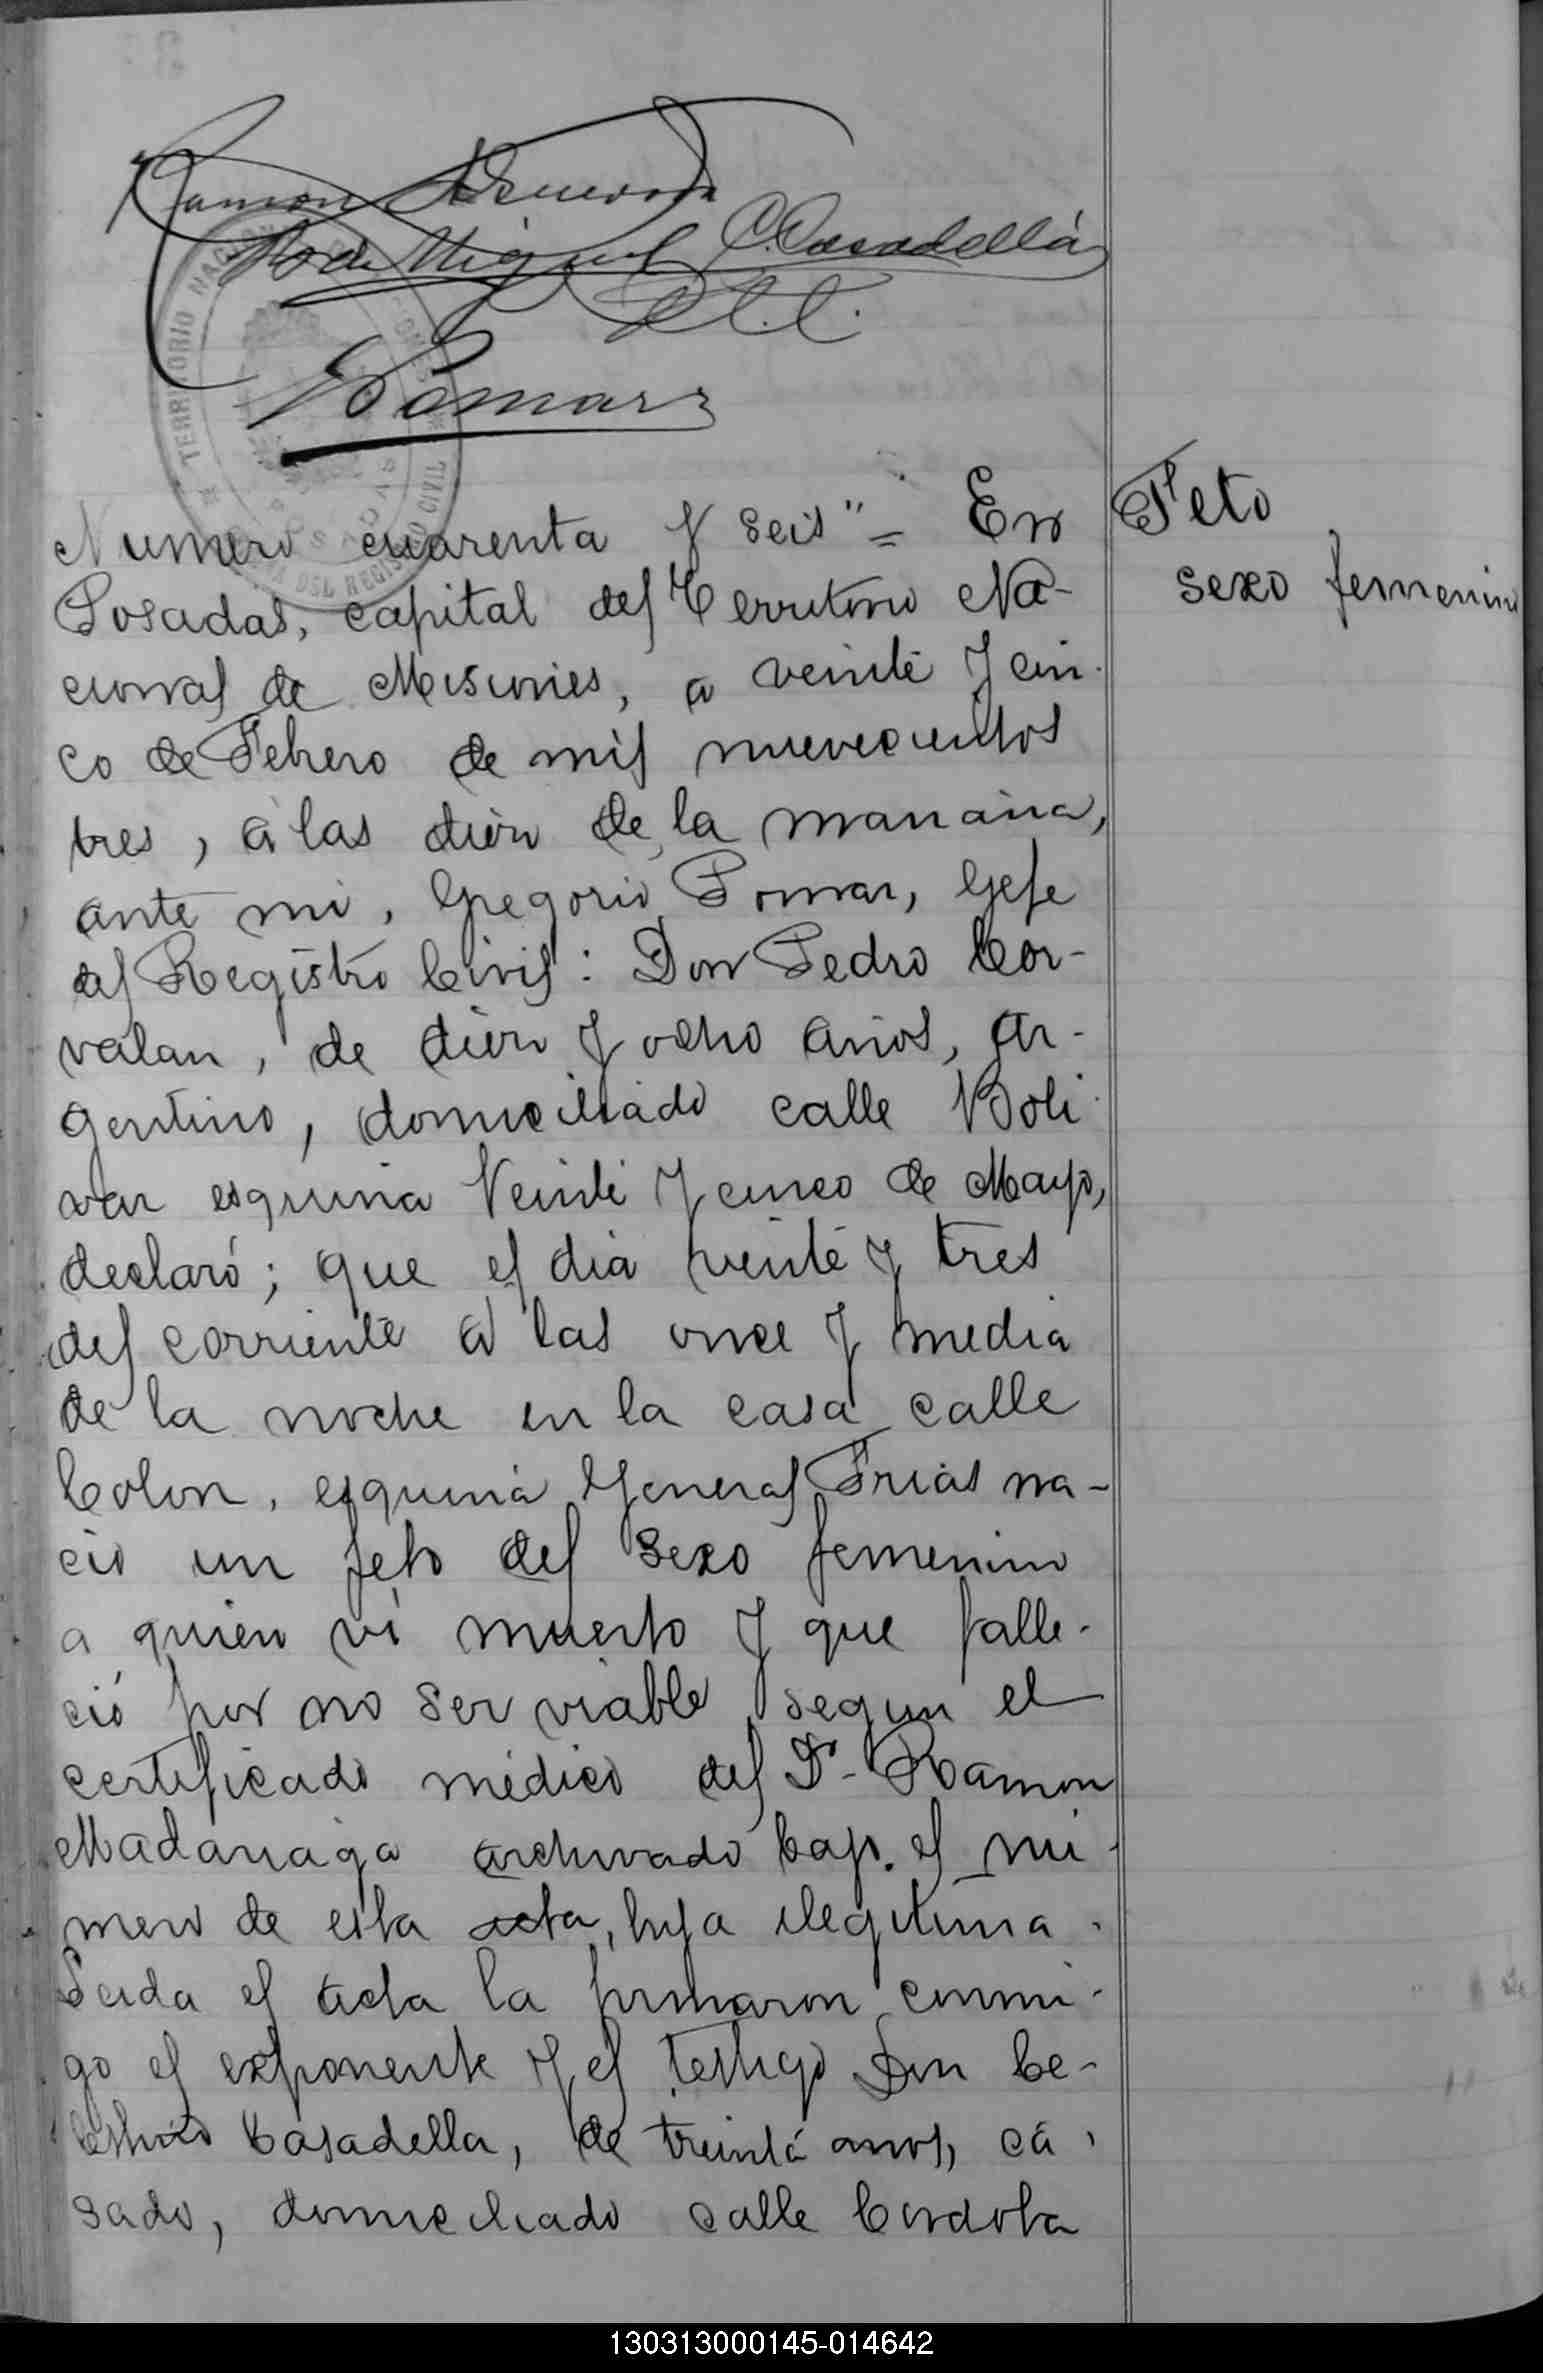 Ramon
Miguel C. Casadellá
Pomar
TERRITORIO NACIONAL
POSADAS
REGISTRO CIVIL
Feto
sexo femenino
Numero cuarenta y seis" = En
Posadas, capital del Territorio Na-
cional de Misiones, a veinte y cin-
co de Febrero de mil novecientos
tres, á las diez de la mañana,
ante mi, Gregorio Pomar, Gefe
del Registro Civil: Don Pedro Cor-
valan, de diez y ocho años, ar-
gentino, domiciliado calle Boli-
var esquina Veinte y cinco de Mayo,
declaró; que el dia veinte y tres
del corriente á las once y media
de la noche en la casa calle
Colon, esquina General Frias na-
ció un feto del sexo femenino
a quien ví muerto y que falle-
ció por no ser viable segun el
certificado médico del Dr. Ramon
Madariaga archivado bajo el nú-
mero de esta acta, hija ilegitima.
Leida el acta la firmaron conmi-
go el exponente y el testigo Don Ce-
lestino Casadella, de treinta años, ca-
sado, domiciliado calle Cordoba
130313000145-014642